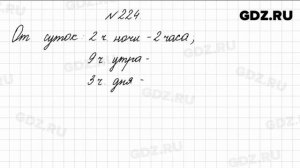 GDZ.RU
№ 224
От суток: 2 ч. ночи - 2 часа,
9 ч. утра -
3 ч. дня -